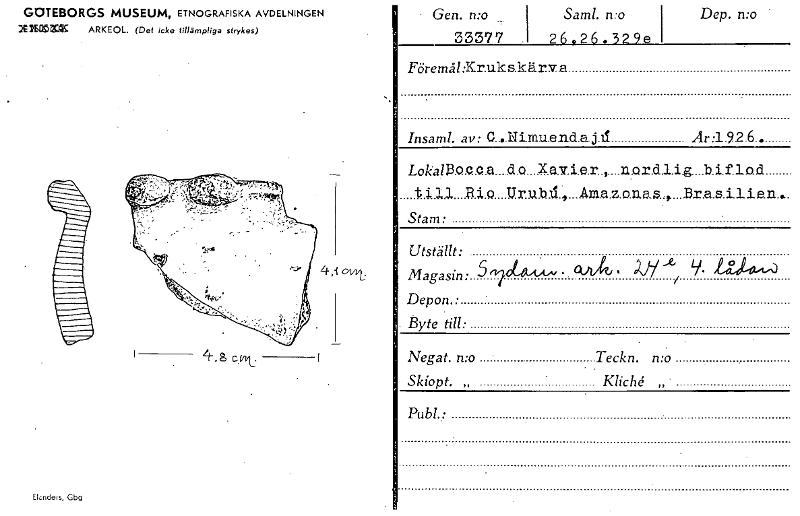 GÖTEBORGS MUSEUM, ETNOGRAFISKA AVDELNINGEN
ARKEOL. (Det icke tillämpliga strykes)
4,1 cm.
4.8 cm.
Elanders, Gbg
Gen. n:o Saml. n:o Dep. n:o
33377 26.26.329e
Föremål: Krukskärva
Insaml. av: C. Nimuendajú År: 1926.
Lokal Bocca do Xavier, nordlig biflod
till Rio Urubú, Amazonas, Brasilien.
Stam:
Utställt:
Magasin: Sydam. ark. 24e, 4. lådan
Depon.:
Byte till:
Negat. n:o Teckn. n:o
Skiopt. „ Kliché „
Publ.: